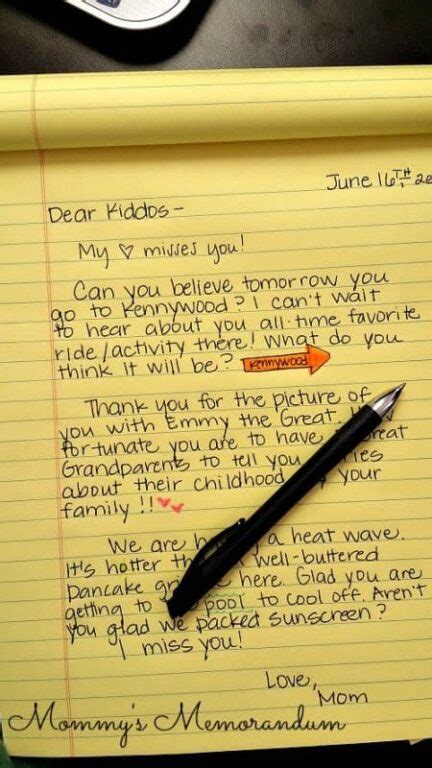 June 16TH
Dear Kiddos-
My ♡ misses you!
Can you believe tomorrow you
go to Kennywood? I can't wait
to hear about you all-time favorite
ride/activity there! What do you
think it will be? Kennywood
Thank you for the picture of
you with Emmy the Great.
fortunate you are to have
Grandparents to tell you
about their childhood your
family!!
We are a heat wave.
It's hotter well-buttered
pancake here. Glad you are
getting to pool to cool off. Aren't
you glad we packed sunscreen?
I miss you!
Love,
Mom
Mommy's Memorandum